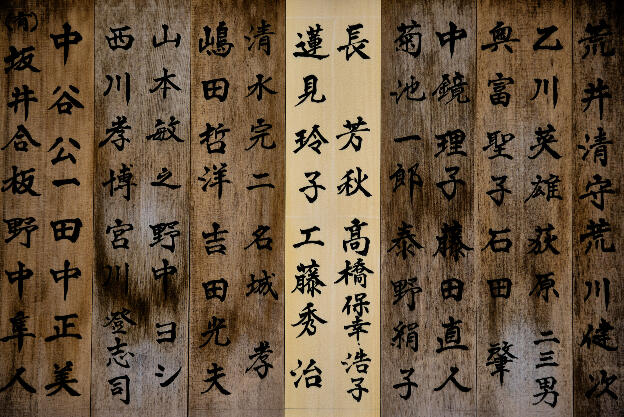 荒井清守 荒川健次
乙川英雄 荻原二三男
奥富聖子 石田肇
中鏡理子 藤田直人
菊池一郎 秦野絹子
長芳秋 髙橋保幸・浩子
蓮見玲子 工藤秀治
清水完二 名城孝
嶋田哲洋 吉田光夫
山本敏之 野中ヨシ
西川孝博 宮川登志司
中谷公一 田中正美
(有)坂井合板 野中隼人